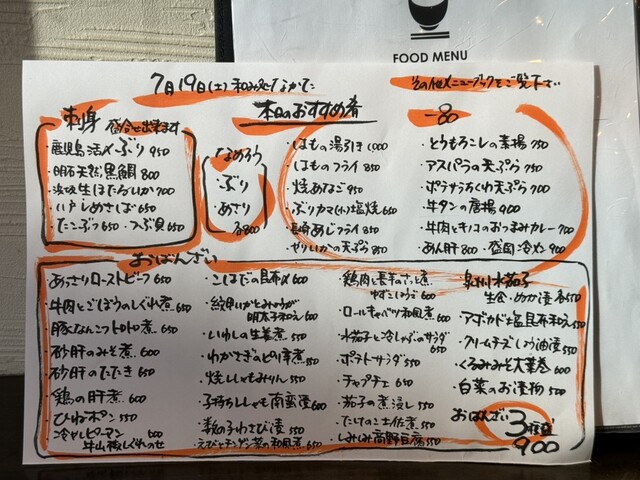 FOOD MENU
7月19日(土) 和み処なかた
その他メニューブックをご覧下さい
本日のおすすめ肴
刺身 盛合せ出来ます
・鹿児島活〆ぶり 950
・明石天然黒鯛 800
・浜茹生ほたるいか 700
・しめさば 650
・たこぶつ 650 ・つぶ貝 650
なめろう
・ぶり
・あさり
各800
一品
・はもの湯引き 1,000
・はものフライ 850
・焼あなご 950
・ブリカマ(小)塩焼 650
・長崎あじフライ 850
・やりいかの天ぷら 850
・とうもろこしの素揚 750
・アスパラの天ぷら 750
・ポテサラちくわ天ぷら 700
・牛タンの唐揚 900
・牛肉とキノコのおつまみカレー 700
・あん肝 800 ・盛岡冷メン 900
おばんざい
あっさりローストビーフ 650
・牛肉とごぼうのしぐれ煮 650
・豚なんこつトロトロ煮 650
・砂肝のみそ煮 600
・砂肝のたたき 650
・鶏の肝煮 600
・ひねポン 550
・冷やしピーマン 600
牛山椒しぐれのせ
・こはだの昆布〆 600
・紋甲いかとみょうが
明太子和え 600
・いわしの生姜煮 550
・わかさぎのピリ辛煮 550
・焼ししゃもみりん 550
・子持ちししゃも南蛮漬 600
・数の子わさび漬 550
・えびとチンゲン菜の和風煮 650
・鶏肉と長芋のさっと煮
ゆずこしょう 600
・ロールキャベツ和風煮 600
・水茄子と冷しゃぶのサラダ 650
・ポテトサラダ 550
・チャプチェ 650
・茄子の煮浸し 550
・たけのこ土佐煮 550
・しみしみ高野豆腐 550
泉州水茄子
生食・ぬか漬 各650
・アボカド塩昆布和え 550
・クリームチーズしょうゆ漬 550
・くるみみそ大葉巻 600
・白菜のお漬物 500
おばんざい
3種盛
900